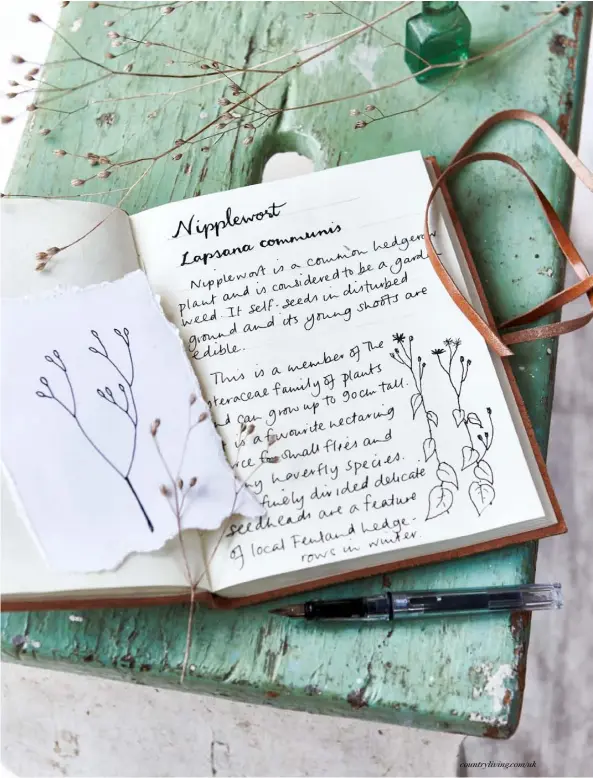 Nipplewort
Lapsana communis
Nipplewort is a common hedgerow
plant and is considered to be a garden
weed. It self-seeds in disturbed
ground and its young shoots are
edible.
This is a member of the
steraceae family of plants
nd can grow up to 90cm tall.
is a favourite nectaring
rce for small flies and
ny hoverfly species.
finely divided delicate
seedheads are a feature
of local Fenland hedge-
rows in winter.
countryliving.com/uk